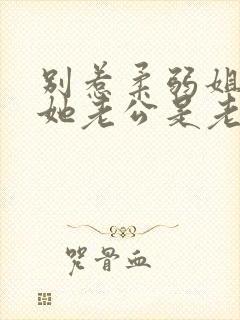 别惹柔弱姐
她老公是老
咒骨血